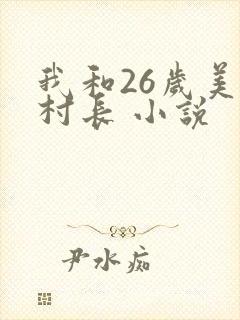 我和26歲美
村長 小説
尹水痴